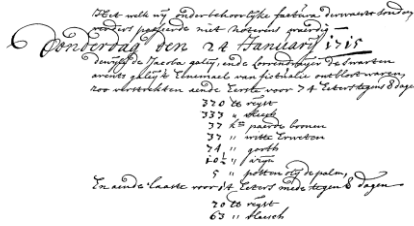 Het welk wij onder behoorlijke factura derwaerts sonden
verders passeerde niet noterens waerdig
Donderdag den 24 Januarij 1715
dewijl de Jacoba galeij, ende Lorrendraijer de Swarten
arents galeij t'Eenemael van fictualie ontbloot waren,
zoo verstrekten aende Eerste voor 74 Eeters tegens 8 dage
370 lb rijst
333 " vleesch
37 k:n paerde bonen
37 " witte Erweten
74 " gorth
10½ " azijn
5 " potten olij de palm,
En aende laaste voor 14 Eeters mede tegen 8 dagen
70 lb rijst
63 " vleesch